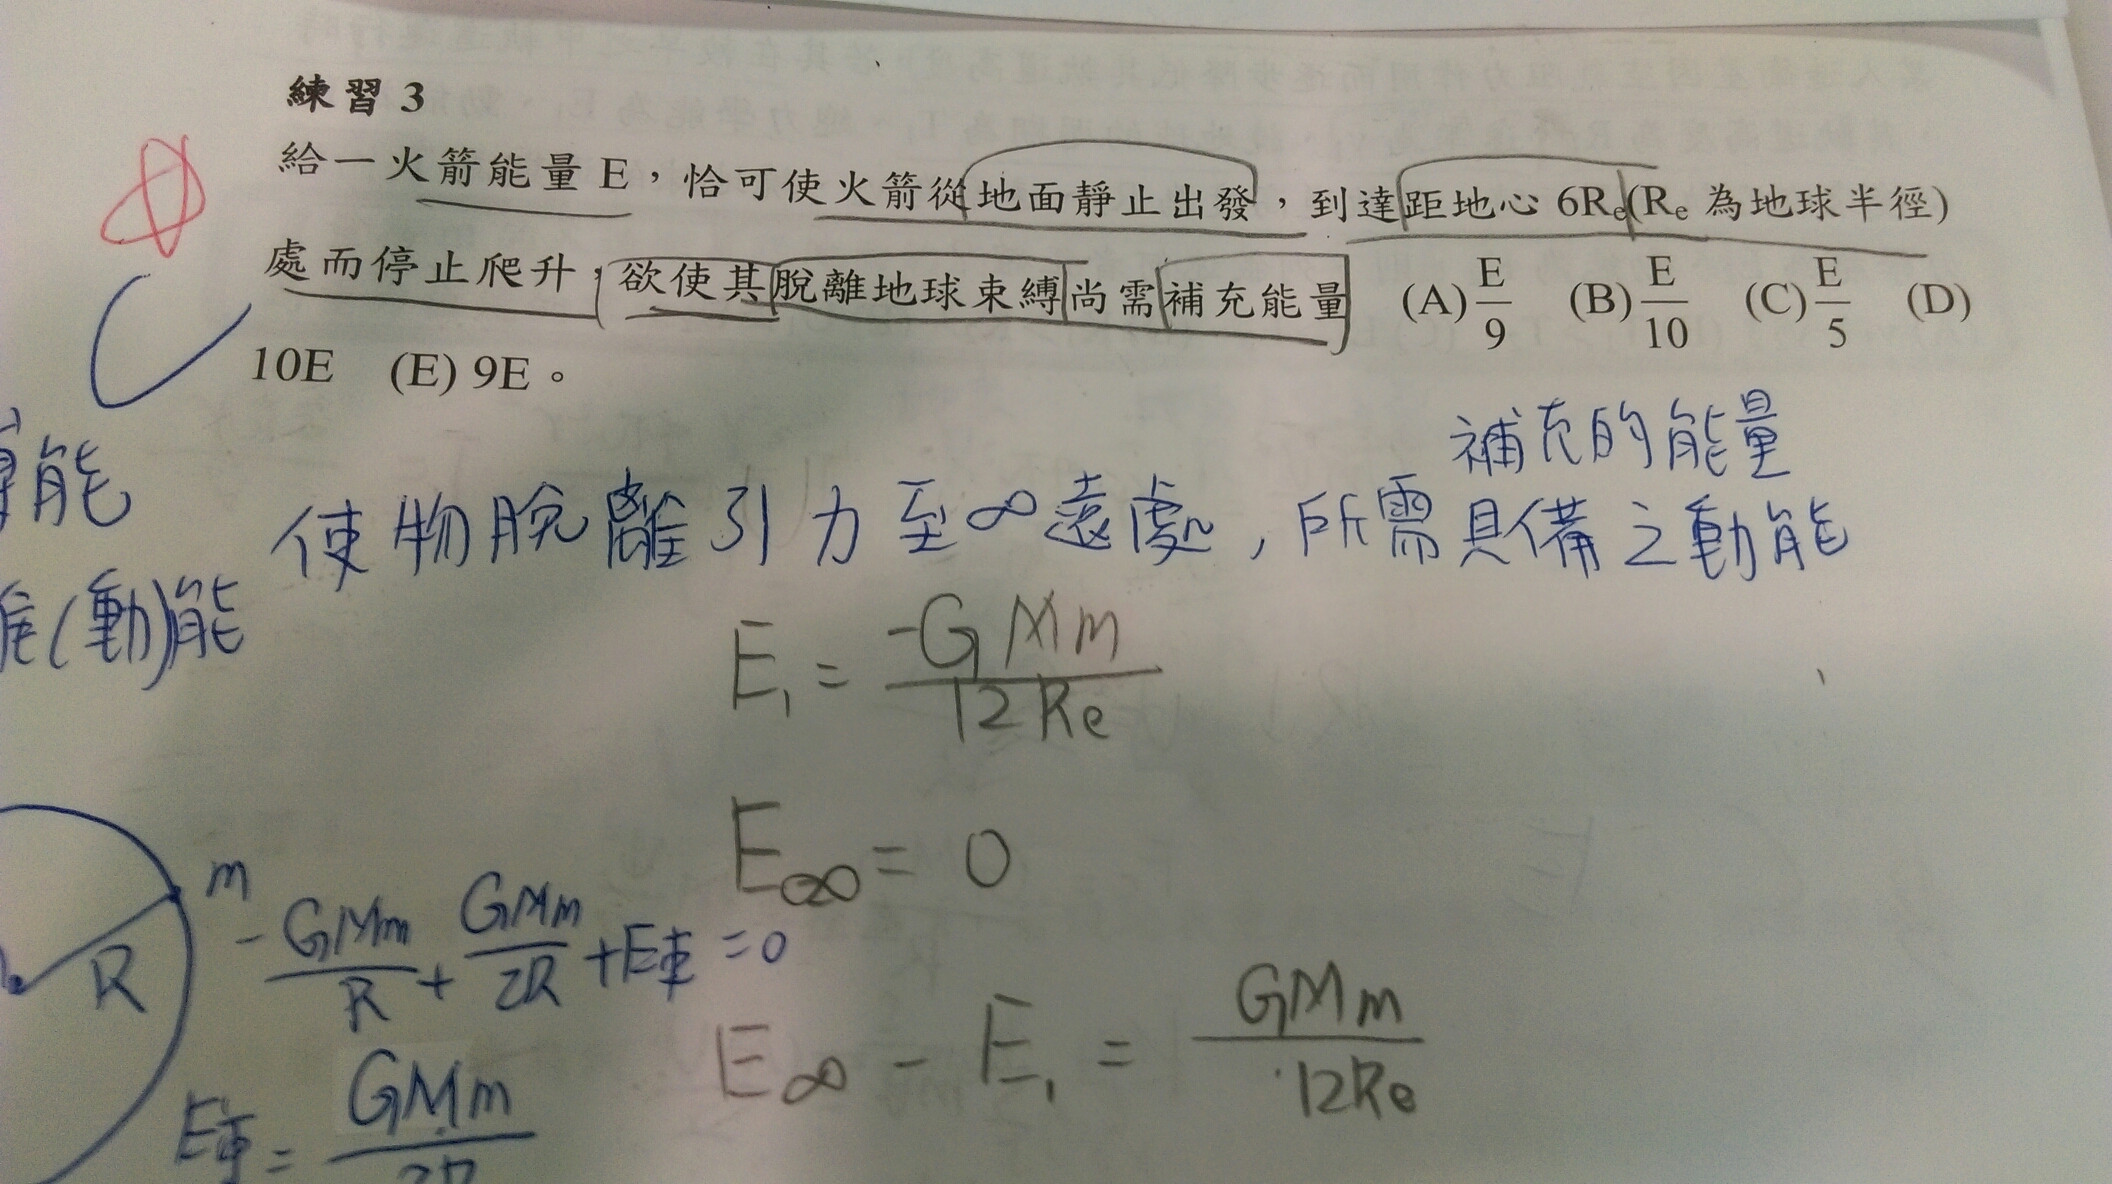 練習 3
給一火箭能量 E，恰可使火箭從地面靜止出發，到達距地心 6Re(Re 為地球半徑)
處而停止爬升，欲使其脫離地球束縛尚需補充能量 (A) E/9 (B) E/10 (C) E/5 (D)
10E (E) 9E。
補充的能量
能
使物脫離引力至∞遠處，所需具備之動能
(動)能
E₁ = -GMm/12Re
E∞ = 0
m
R
-GMm/R + GMm/2R + E = 0
E∞ - E₁ = GMm/12Re
E = GMm